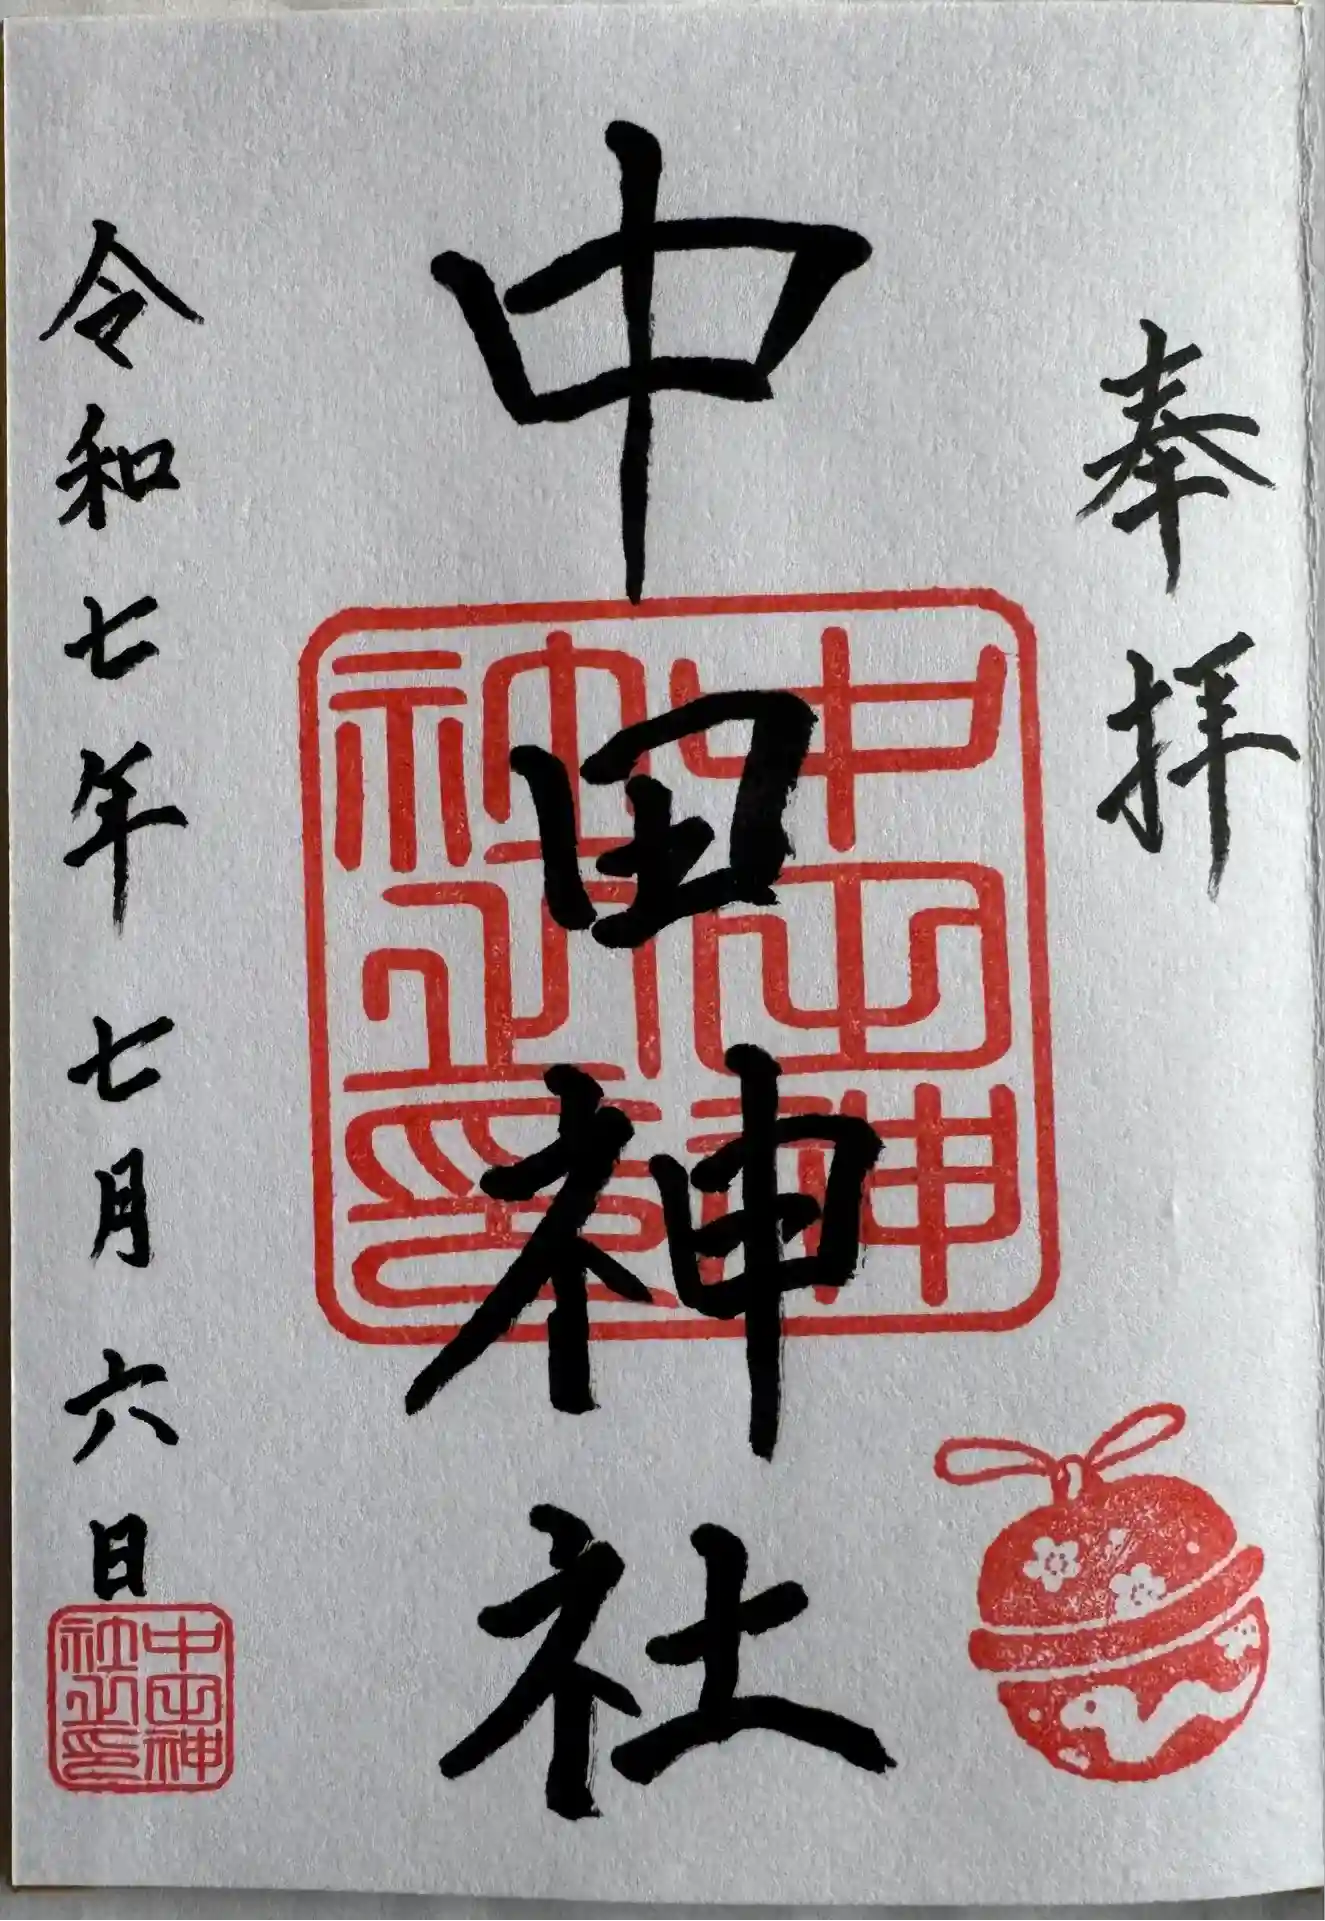 奉拝
中田神社
中田神
社之印
令和七年七月六日
中田神
社之印